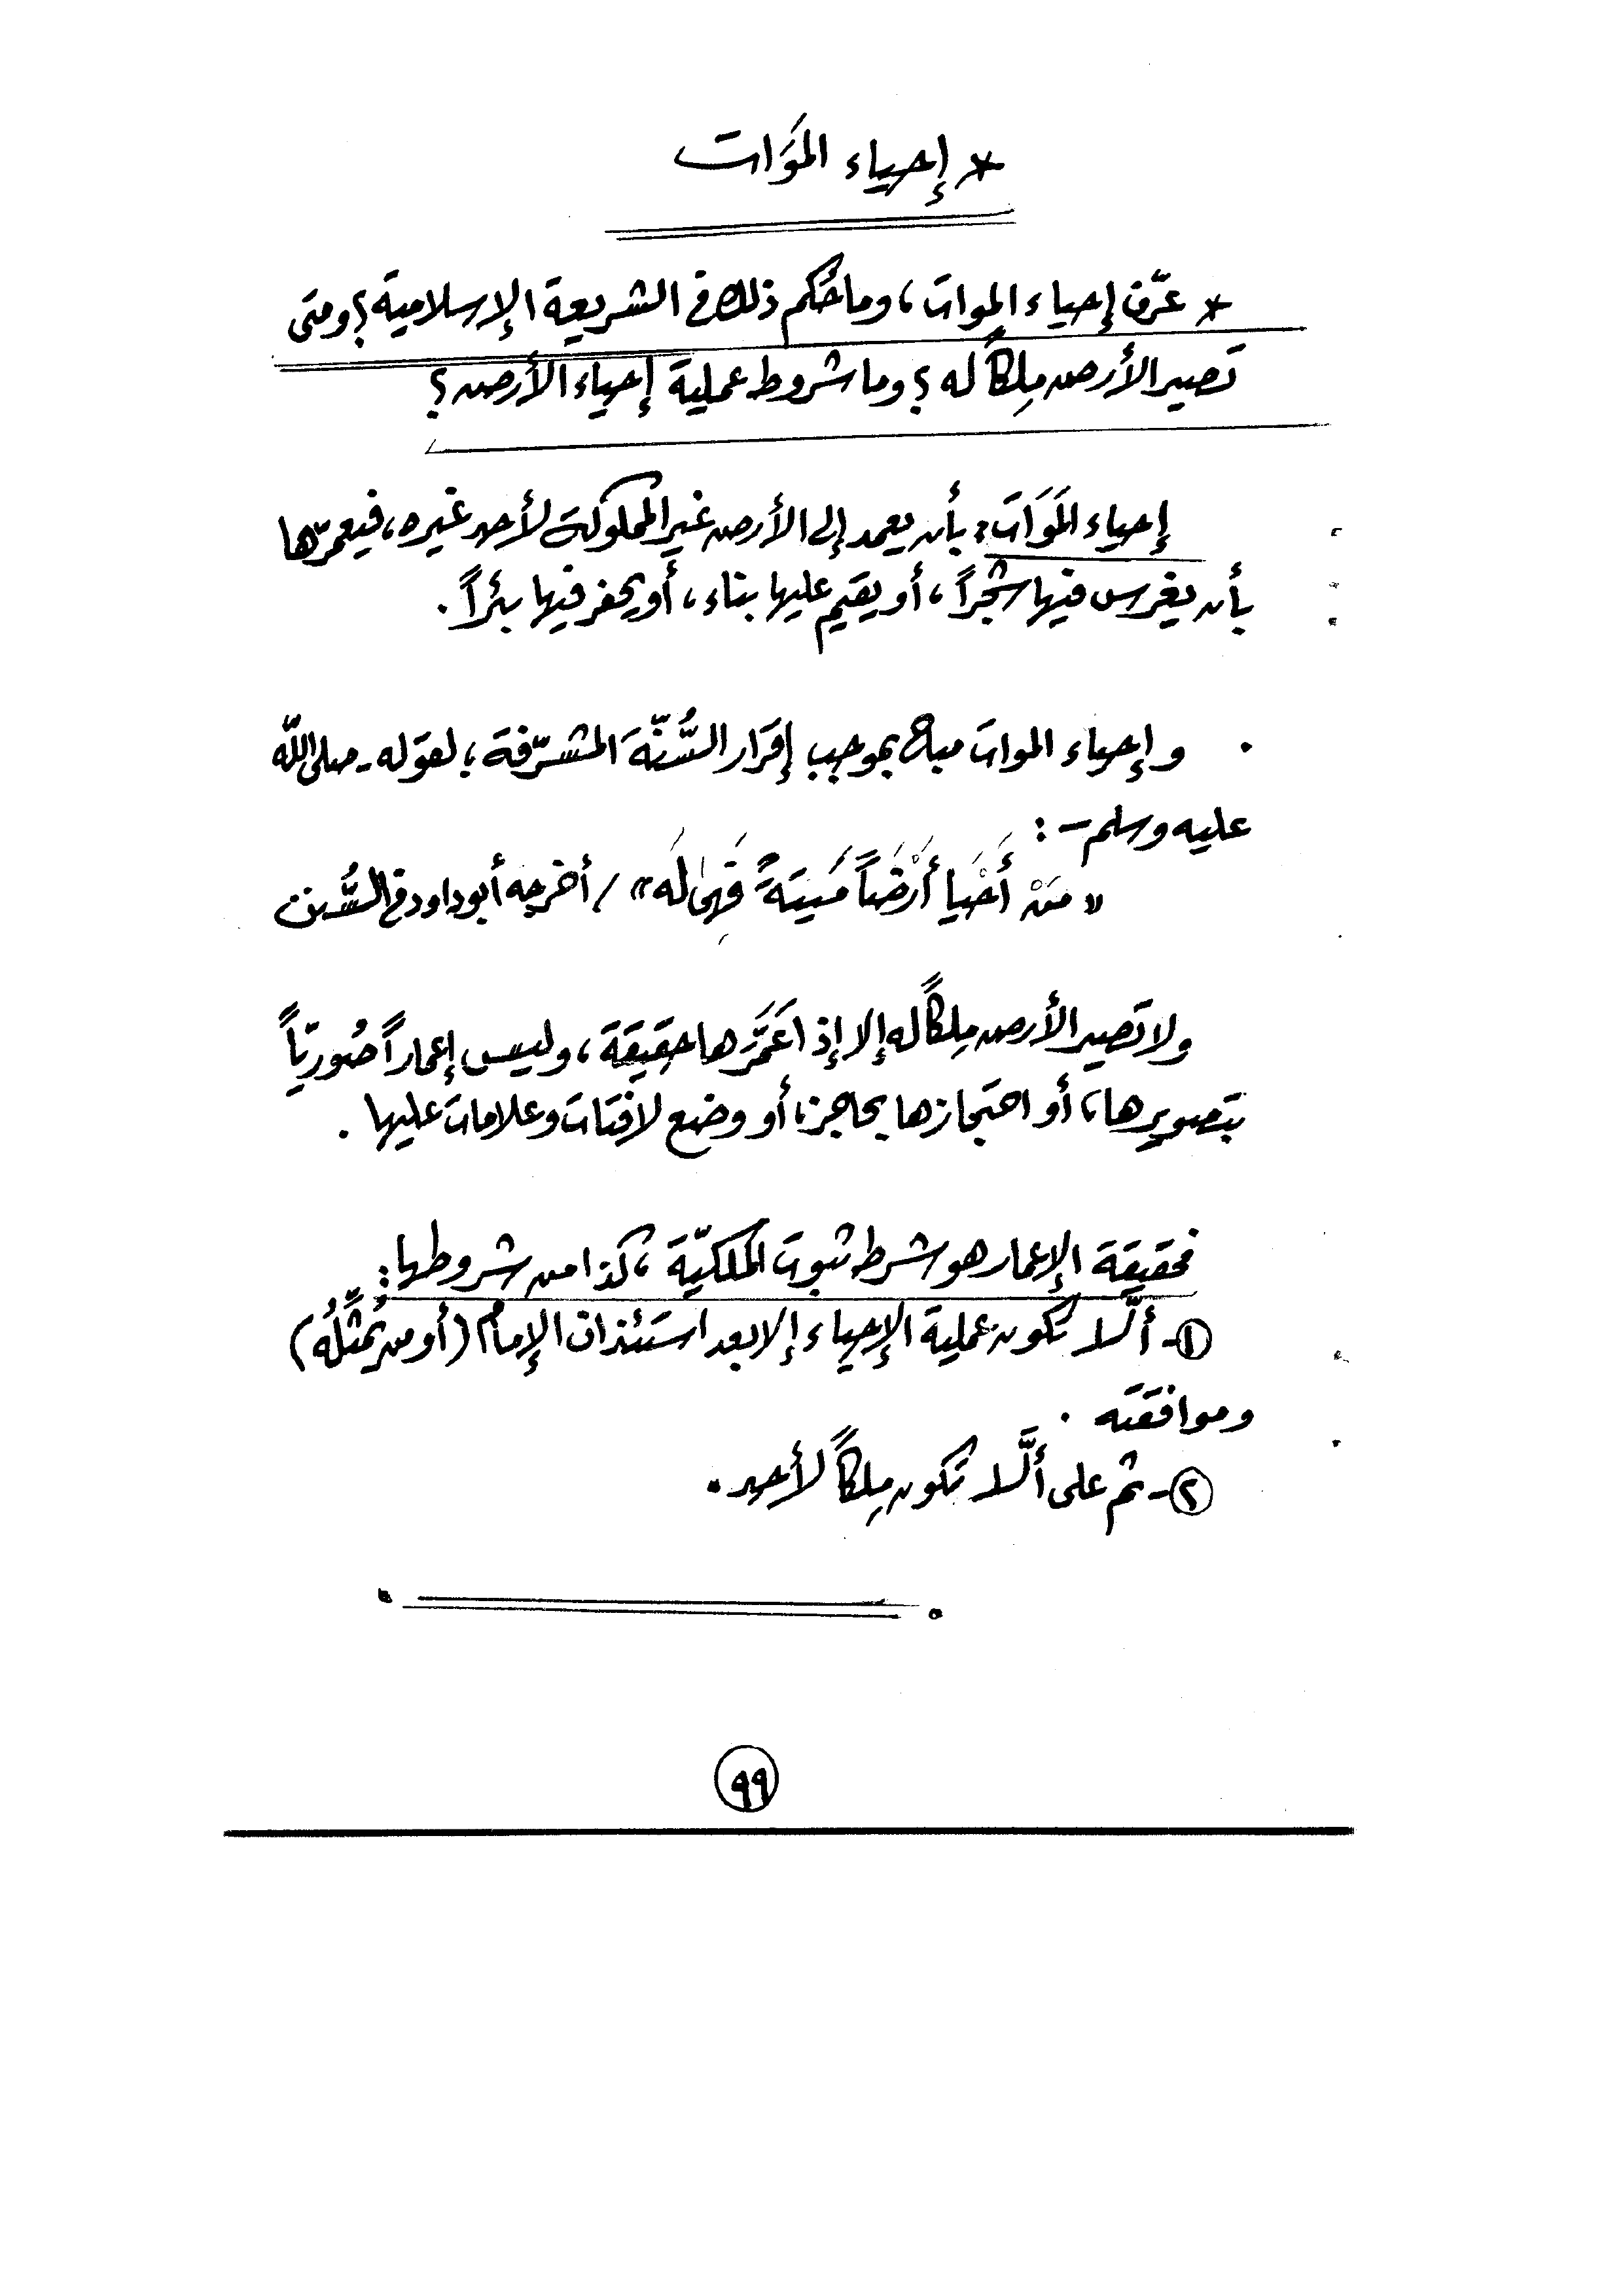 * إحياء المَوَات
* عرّف إحياء الموات، وما حُكم ذلك في الشريعة الإسلامية؟ ومتى
تصير الأرض مِلكاً له؟ وما شروط عملية إحياء الأرض؟
إحياء المَوَات: بأن يعمد إلى الأرض غير المملوكة لأحد غيره، فيعمّرها
بأن يغرس فيها شجراً، أو يقيم عليها بناء، أو يحفر فيها بئراً.
. وإحياء الموات مباح بموجب إقرار السُّنّة المشرّفة؛ لقوله - صلى الله
عليه وسلم - :
« مَنْ أَحْيَا أَرْضَاً مَيتَةً فَهِىَ لَه» / أخرجه أبو داود في السُّنن
ولا تصير الأرض مِلكاً له إلا إذا عَمَّرَها حقيقة، وليس إعماراً صُوريّاً
بتصويرها، أو احتجازها بحاجز، أو وضع لافتات وعلامات عليها .
فحقيقة الإعمار هو شرط ثبوت الملكيّة، كذا من شروطها:
١- ألّا تكون عملية الإحياء إلا بعد استئذان الإمام (أو من يُمثِّلُه)
وموافقته .
٢- ثم على ألَّا تكون مِلكاً لأحد .
٩٩